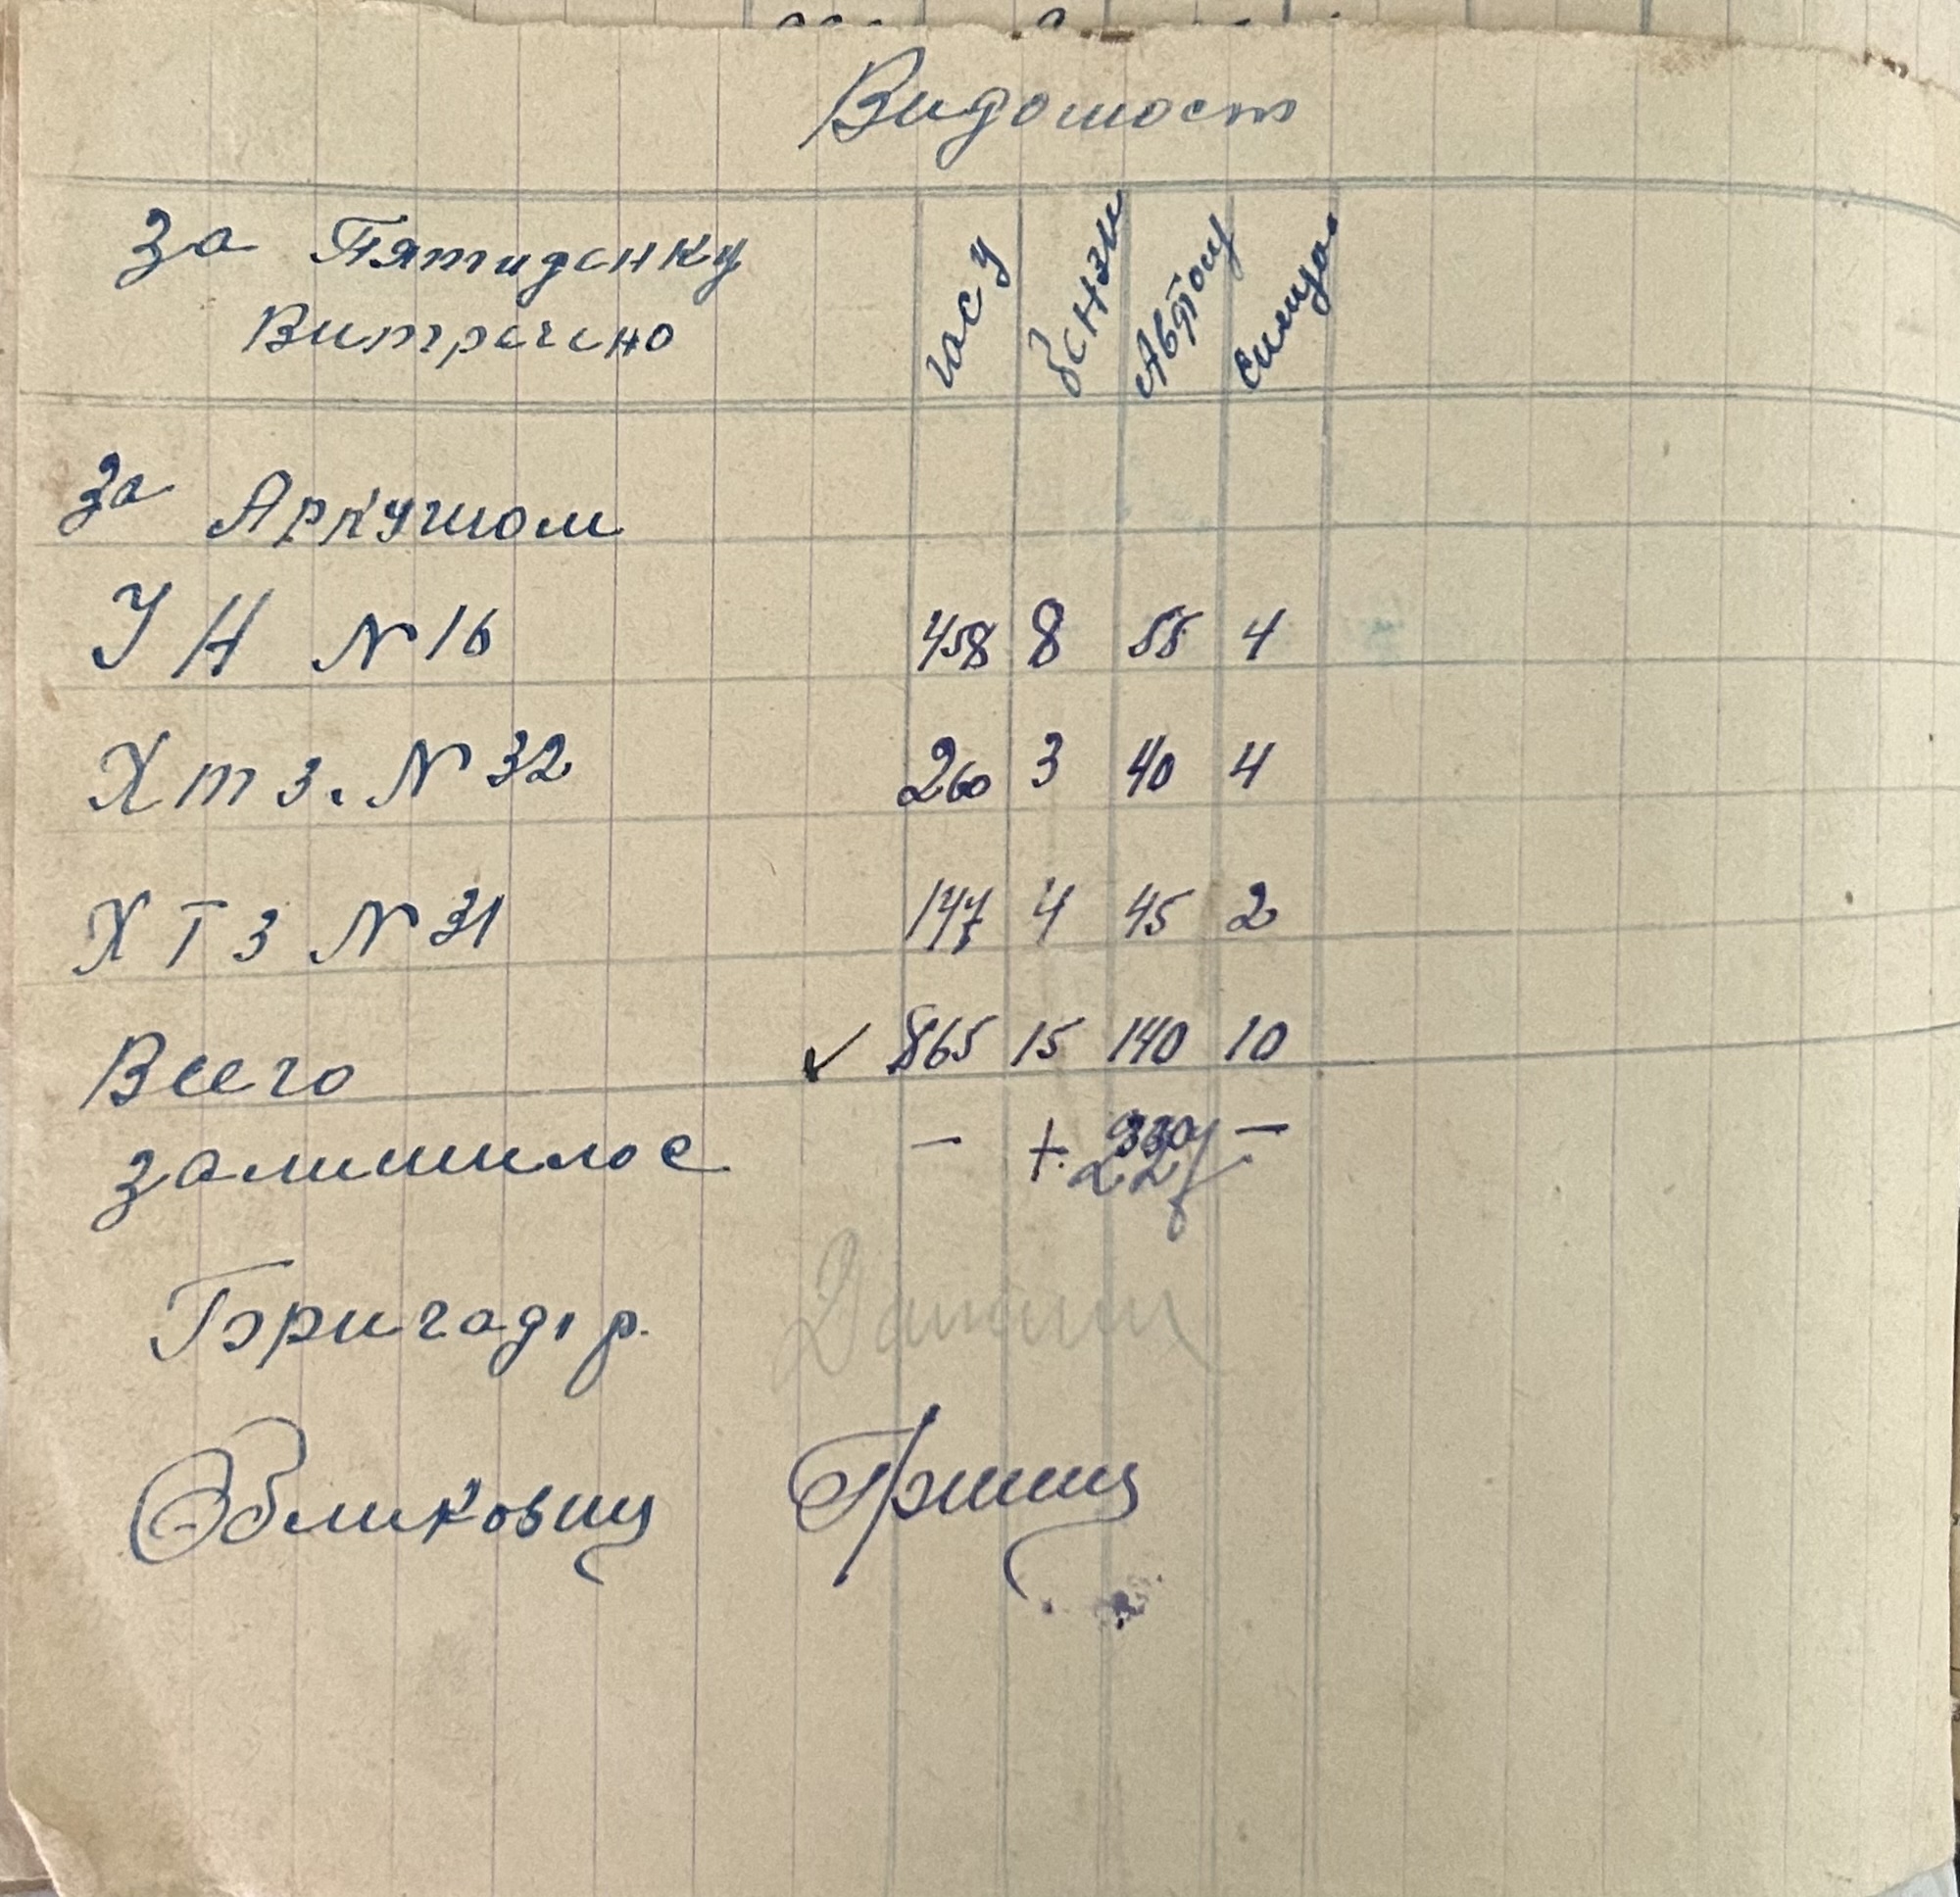 Видомост
За Пятиденку
Витрачено
гасу бензи Автолу солидо.
За Аркушом
УН N 16 458 8 55 4
Хтз. N 32 260 3 40 4
ХТЗ N 31 147 4 45 2
Всего ✓ 865 15 140 10
залишилос — + —
Бригадір.
Обликовиц